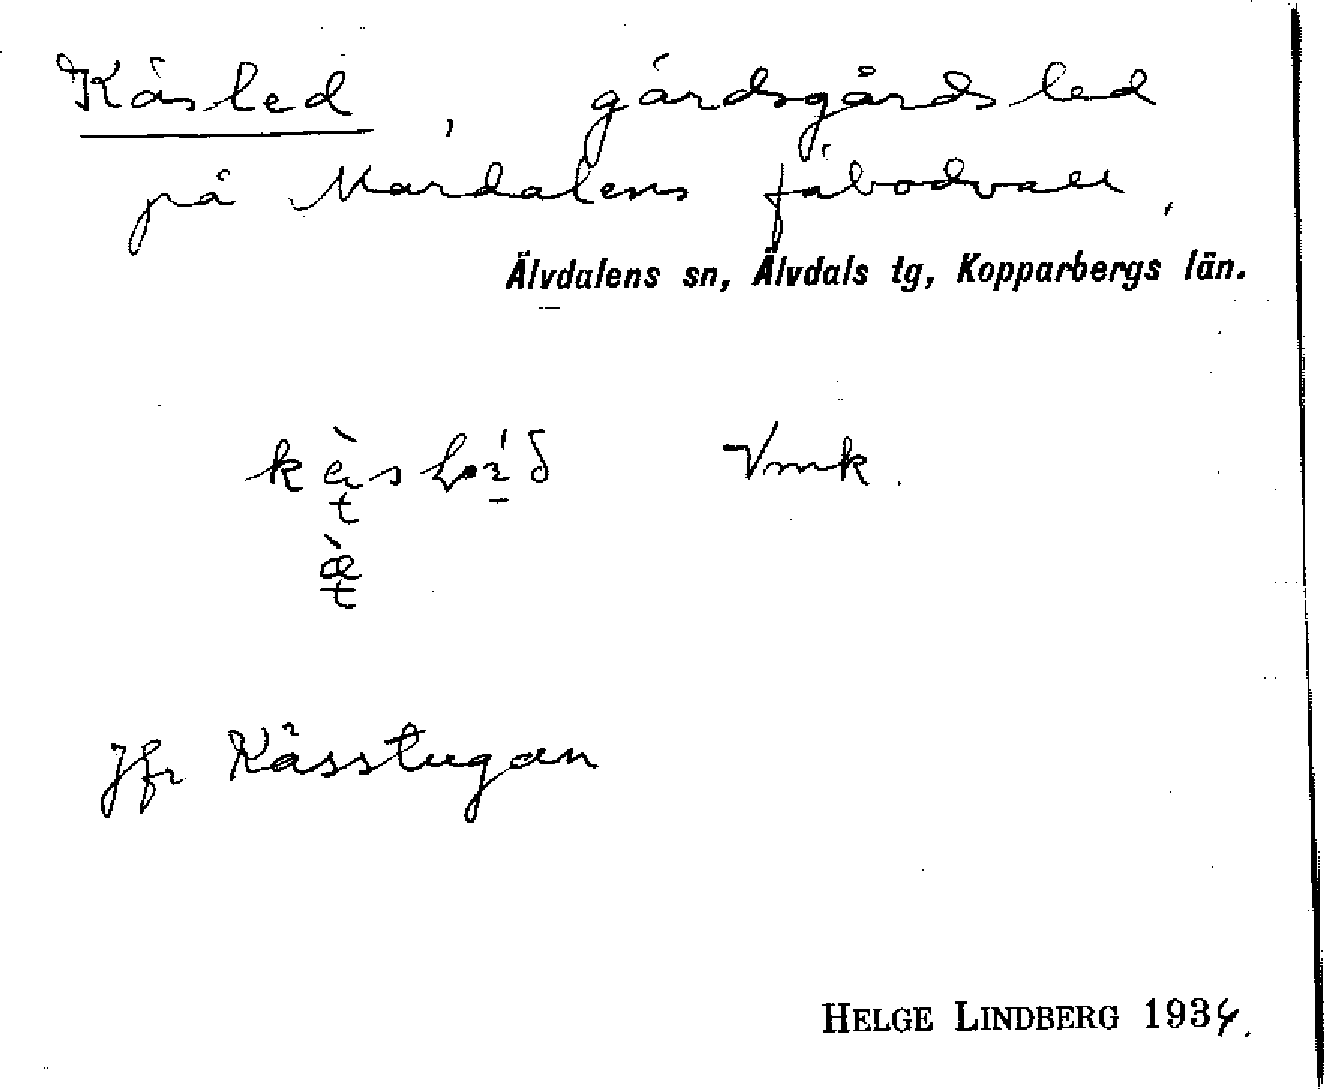 Käsled, gärdsgårdsled
på Mardalens fäbodvall,
Älvdalens sn, Älvdals tg, Kopparbergs län.
Vmk.
Jfr Kässtugan
HELGE LINDBERG 1934.